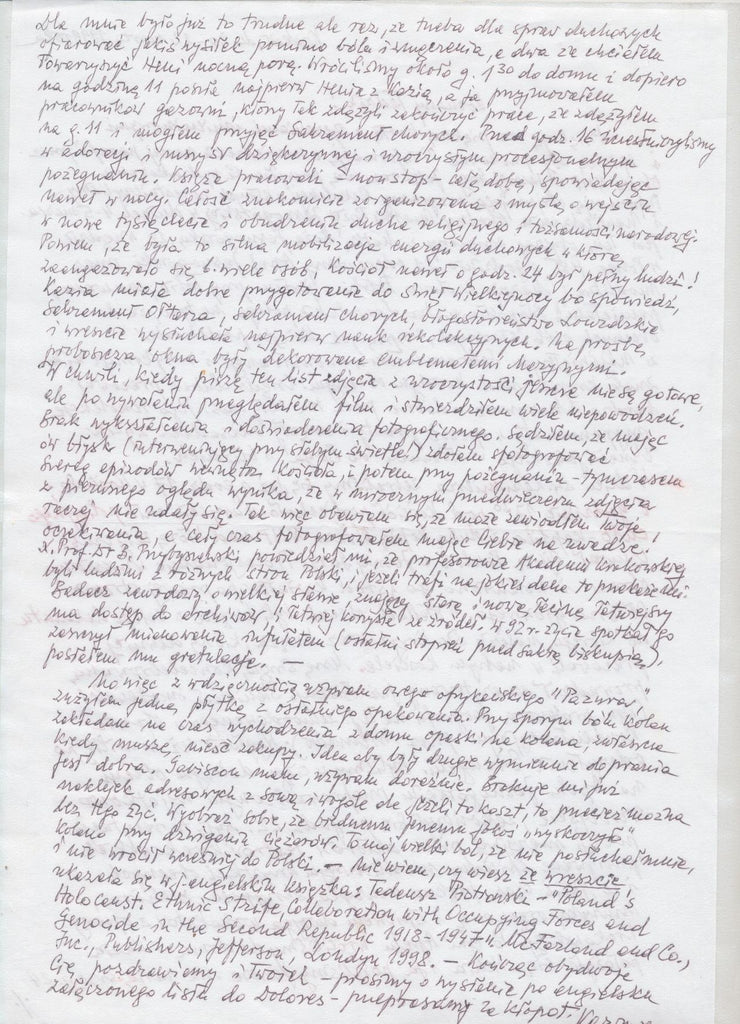 Dla mnie było już to trudne ale rzekł, że trzeba dla spraw duchowych
ofiarować jakiś wysiłek pomimo bólu i zmęczenia, a dwa że chciałem
towarzyszyć Heni nocną porą. Wróciliśmy około g. 1³⁰ do domu i dopiero
na godzinę 11 poszła najpierw Henia z Kazią, a ja przyjmowałem
pracowników gazowni, którzy tak zdążyli zakończyć pracę, że zdążyłem
na g. 11 i mogłem przyjąć Sakrament chorych. Przed godz. 16 uczestniczyliśmy
w adoracji i mszy św dziękczynnej i uroczystym procesjonalnym
pożegnaniu. Księża pracowali - nonstop - całą dobę, spowiadając
nawet w nocy. Całość znakomicie zorganizowana z myślą o wejściu
w nowe tysiąclecie i obudzeniu ducha religijnego i tożsamości narodowej.
Powiem, że była to silna mobilizacja energii duchowych w którą
zaangażowało się b. wiele osób, Kościół nawet o godz. 24 był pełny ludzi!
Kazia miała dobre przygotowanie do Świąt Wielkiejnocy bo spowiedź,
Sakrament Ołtarza, Sakrament chorych, błogosławieństwo Lourdzkie
i wreszcie wysłuchała najpierw nauk rekolekcyjnych. Na prośbę
proboszcza okna były dekorowane emblematami Maryjnymi.
W chwili, kiedy piszę ten list zdjęcia z uroczystości jeszcze nie są gotowe,
ale po wywołaniu przeglądałem film i stwierdziłem wiele niepowodzeń.
Brak wykształcenia i doświadczenia fotograficznego. Sądziłem, że mając
ów błysk (interweniujący przy słabym świetle) zdołam sfotografować
szereg epizodów wewnątrz Kościoła, i potem przy pożegnaniu - tymczasem
z pierwszego oglądu wynika, że w mrocznym przedwieczerzu zdjęcia
raczej nie udały się. Tak więc obawiam się, że może zawiodłem Twoje
oczekiwania, a cały czas fotografowałem mając Ciebie na uwadze!
X. Prof. Dr B. Przybyszewski powiedział mi, że profesorowie Akademii Krakowskiej
byli ludźmi z różnych stron Polski, i jeżeli trafi na jakieś dane to przekaże mi.
Badacz zawodowy o wielkiej sławie, znający starą i nową łacinę łatwiejszy
ma dostęp do archiwów, i łatwiej korzysta ze źródeł. W 92 r. życia spotkał go
zaszczyt mianowania infułatem (ostatni stopień przed sakrą biskupią),
posłałem mu gratulacje. —
No więc z wdzięcznością używam owego afrykańskiego "Pazura",
zużyłem jedną płytkę z ostatniego opakowania. Przy sporym bólu kolan
zakładam na czas wychodzenia z domu opaski na kolana, zwłaszcza
kiedy muszę nieść zakupy. Idea aby były drugie wymiennie do prania
jest dobra. Gaviscon mam, używam doraźnie. Brakuje mi już
naklejek adresowych z sową, i wogóle ale jeżeli to koszt, to przecież można
bez tego żyć. Wyobraź sobie, że biednemu Jerzemu jakoś „wyskoczyło"
kolano przy dźwiganiu ciężarów. To mój wielki ból, że nie posłuchał mnie,
i nie wrócił wcześniej do Polski. — Nie wiem, czy wiesz że wreszcie
ukazała się w j. angielskim książka: Tadeusz Piotrowski - "Poland's
Holocaust. Ethnic Strife, Collaboration with Occupying Forces and
Genocide in the Second Republic 1918-1947". McFarland and Co.,
Inc., Publishers, Jefferson, Londyn 1998. — Kończąc obydwoje
Cię pozdrawiamy i Twoich - prosimy o wysłanie po angielsku
załączonego listu do Dolores - przepraszamy za kłopot.